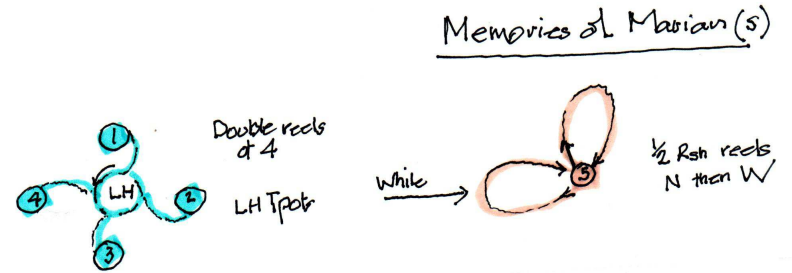 Memories of Marian (s)
Double reels
of 4
LH Tpots
1
2
3
4
LH
While
5
½ Rsh reels
N then W